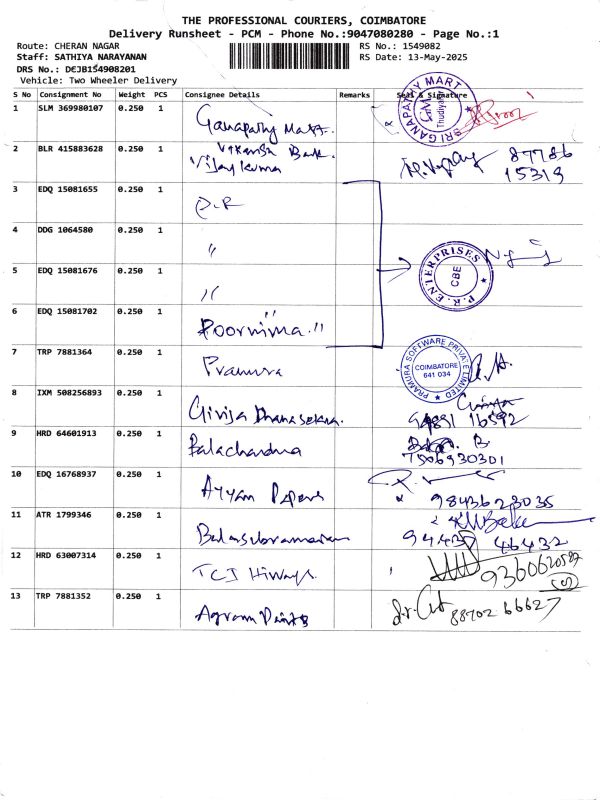 THE PROFESSIONAL COURIERS, COIMBATORE
Delivery Runsheet - PCM - Phone No.:9047080280 - Page No.:1
Route: CHERAN NAGAR
RS No.: 1549082
Staff: SATHIYA NARAYANAN
RS Date: 13-May-2025
DRS No.: DEJB154908201
Vehicle: Two Wheeler Delivery
S No Consignment No Weight PCS Consignee Details Remarks Seal & Signature
1 SLM 369980107 0.250 1 Ganapathy Mart
SRI GANAPATHY MART Thudiyalur
2 BLR 415883628 0.250 1 Bank
Vijay kumar 87786
15319
3 EDQ 15081655 0.250 1 P.R
4 DDG 1064580 0.250 1 "
P.R. ENTERPRISES CBE
5 EDQ 15081676 0.250 1 "
6 EDQ 15081702 0.250 1 Poornima "
7 TRP 7881364 0.250 1 Pramura
PRAMURA SOFTWARE PRIVATE LIMITED COIMBATORE 641 034
8 IXM 508256893 0.250 1 Girija Dhanasekar.
16592
9 HRD 64601913 0.250 1 Balachandra
7506930301
10 EDQ 16768937 0.250 1 Ayyan Papers
98436 23035
11 ATR 1799346 0.250 1 Balasubramaniam
46432
12 HRD 63007314 0.250 1 TCI Hiways
9360620587
13 TRP 7881352 0.250 1 Agram Paints
88702 66627